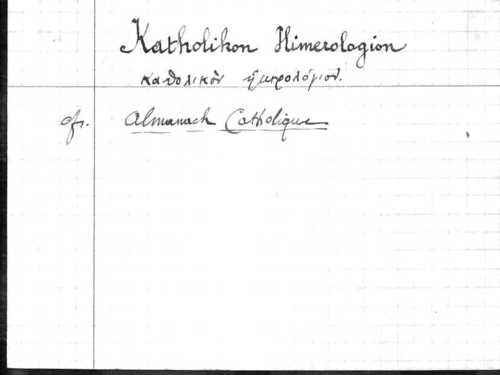 Katholikon Himerologion
καθολικὸν ἡμερολόγιον.
cfr. Almanach Catholique